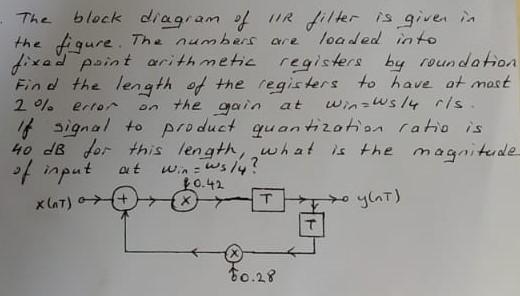 . The block diagram of IIR filter is given in
the figure. The numbers are loaded into
fixed point arithmetic registers by roundation
Find the length of the registers to have at most
2 % error on the gain at win=ws/4 r/s.
If signal to product quantization ratio is
40 dB for this length, what is the magnitude
of input at win=ws/4?
0.42
x(nT) + x T y(nT)
T
x
0.28